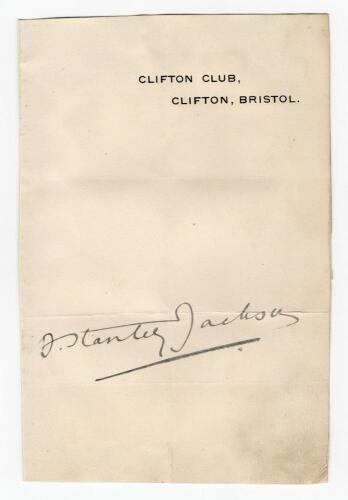 CLIFTON CLUB,
CLIFTON, BRISTOL.
F. Stanley Jackson